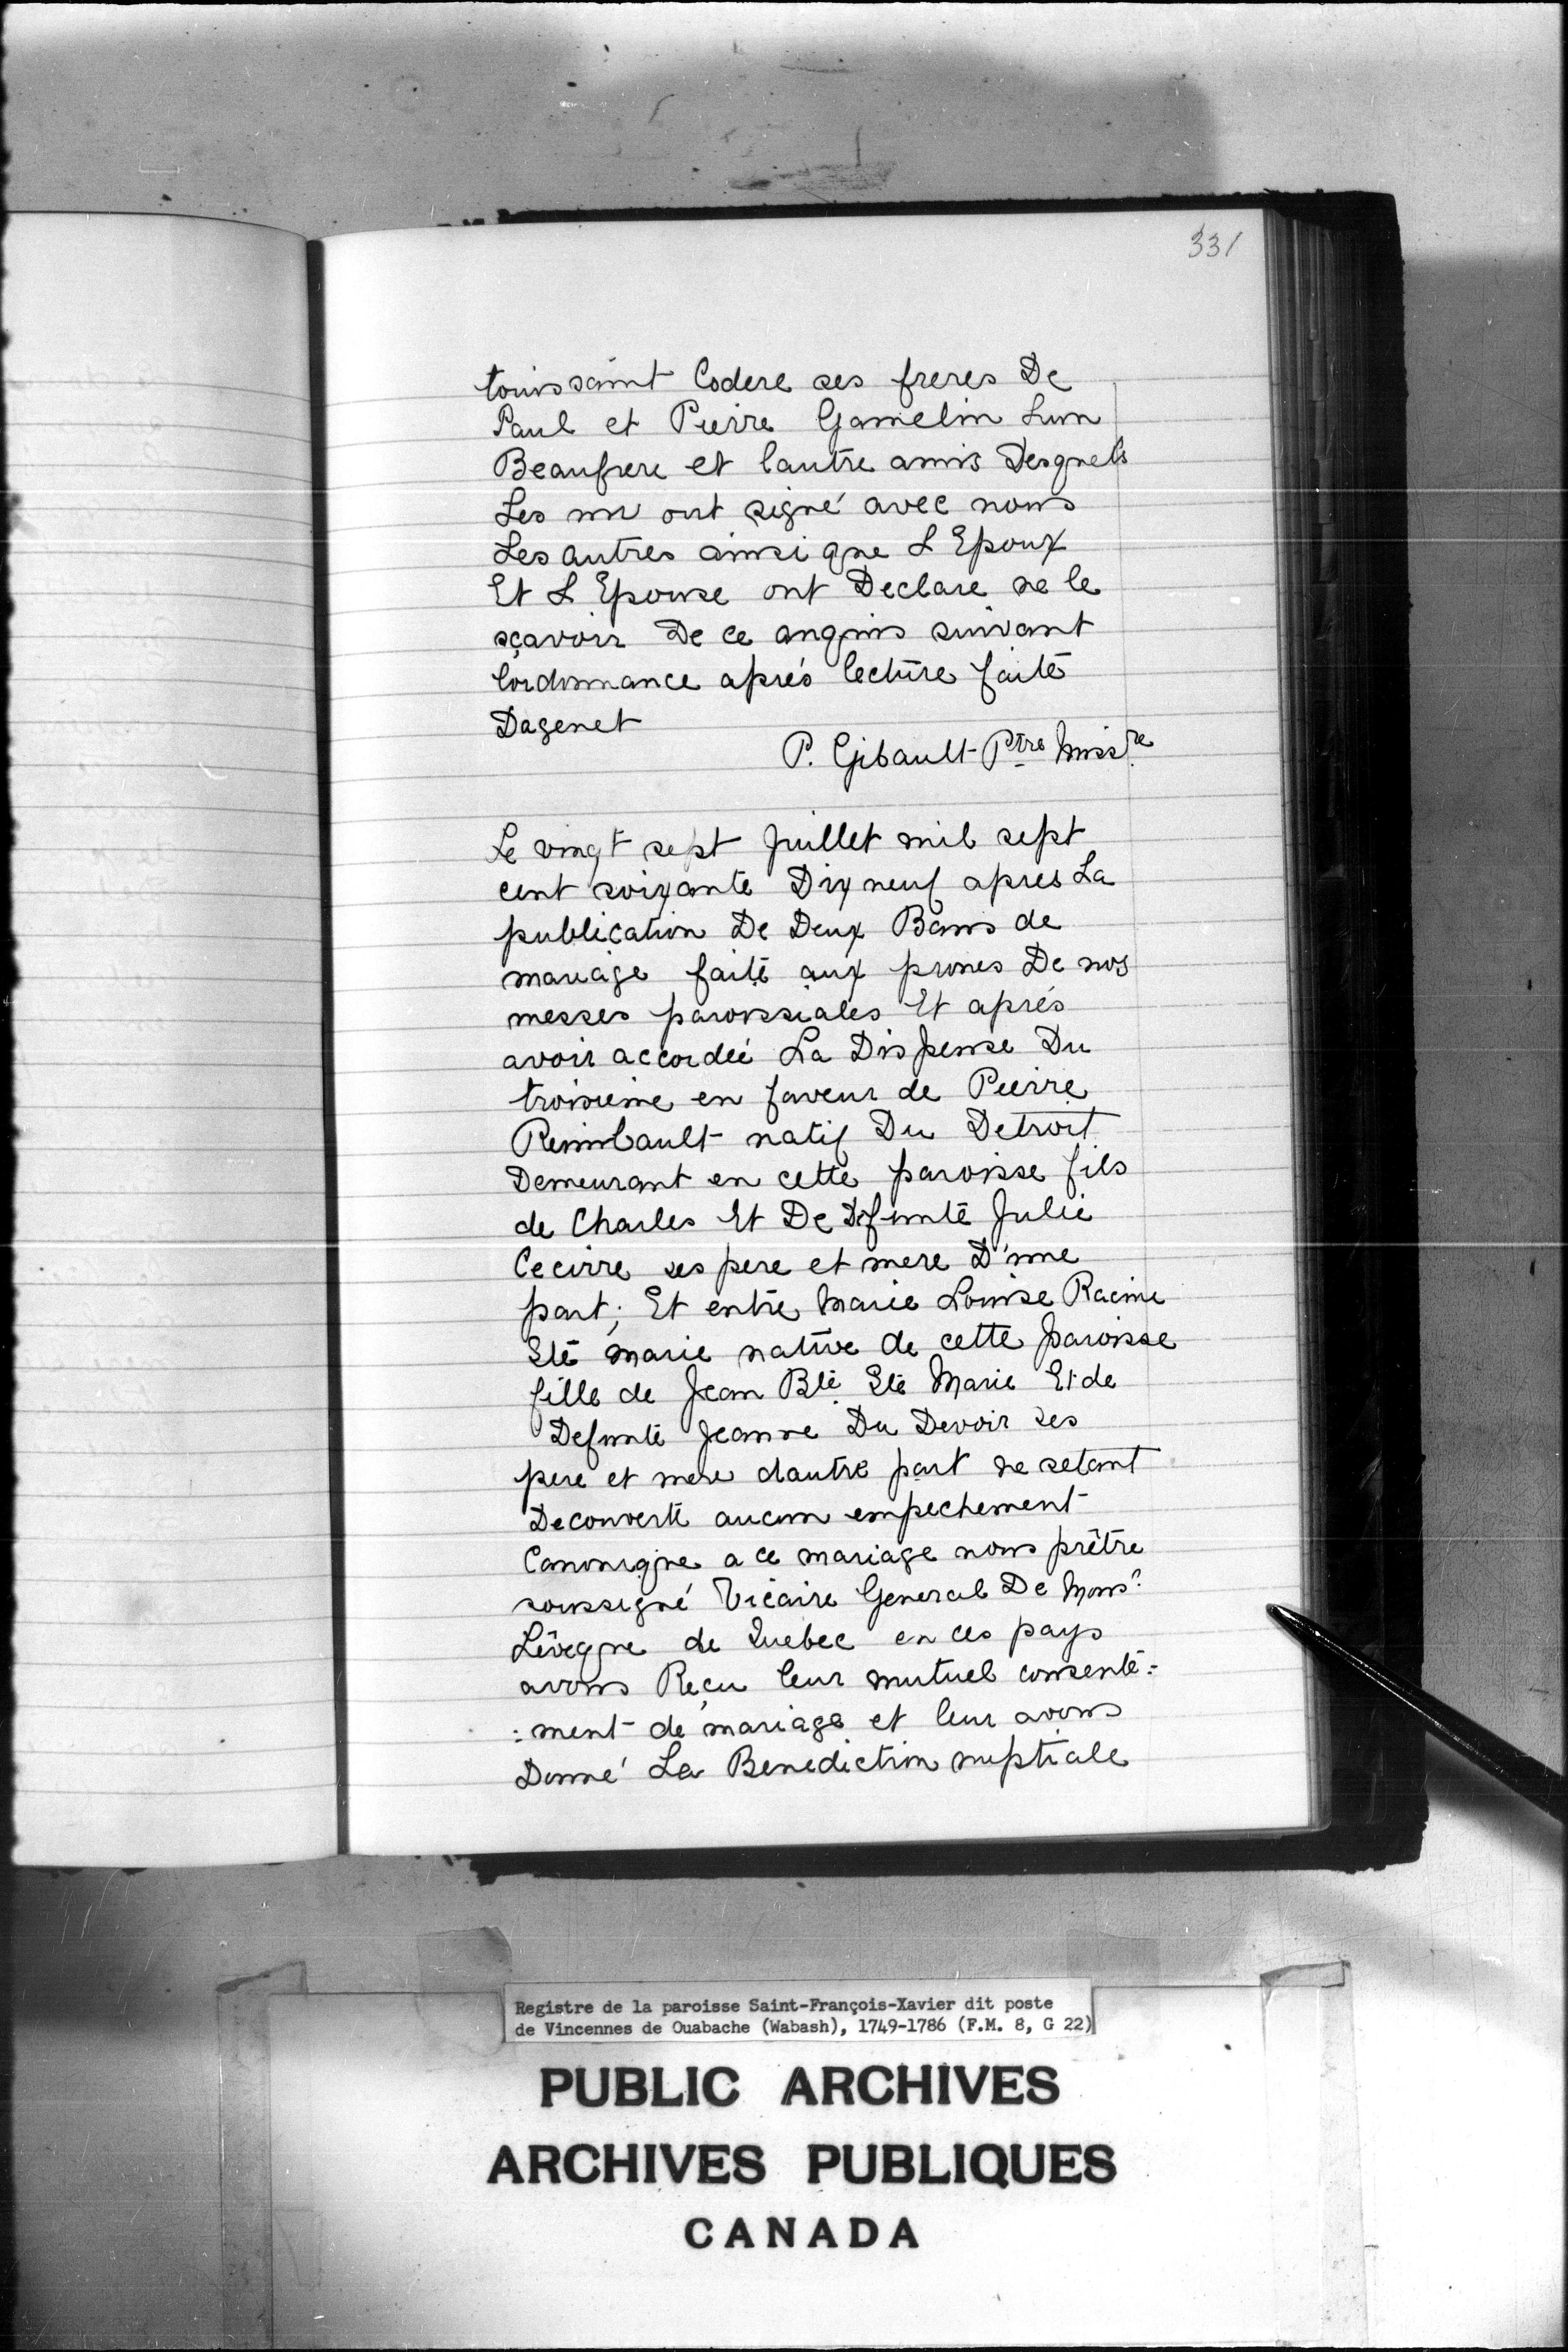 331
toussaint Codere ses freres De
Paul et Pierre Gamelin Lun
Beaufrere et lautre amis Desquels
Les un ont signé avec nous
Les autres ainsi que L Epoux
Et L Epouse ont Declare ne le
sçavoir De ce anquis suivant
lordonnance aprés lecture faite
Dagenet
P. Gibault Ptre Missre
Le vingt sept Juillet mil sept
cent soixante Dix neuf apres La
publication De Deux Bans de
mariage faite aux prones De nos
messes paroissiales Et aprés
avoir accordée La Dispense Du
troisieme en faveur de Pierre
Reimbault natif Du Detroit
Demeurant en cette paroisse fils
de Charles Et De Defunte Julie
Cecirre ses pere et mere D'une
part; Et entre Marie Louise Racine
Ste marie native de cette paroisse
fille de Jean Bte Ste Marie Et de
Defunte Jeanne Du Devoir ses
pere et mere dautre part ne setant
Decouverte aucun empechement
Canonique a ce mariage nous prêtre
soussigné Vicaire General De Monsr
Lêveque de Quebec en ces pays
avons Reçu leur mutuel consente=
=ment de mariage et leur avons
Donné La Benediction nuptiale
Registre de la paroisse Saint-François-Xavier dit poste
de Vincennes de Ouabache (Wabash), 1749-1786 (F.M. 8, G 22)
PUBLIC ARCHIVES
ARCHIVES PUBLIQUES
CANADA